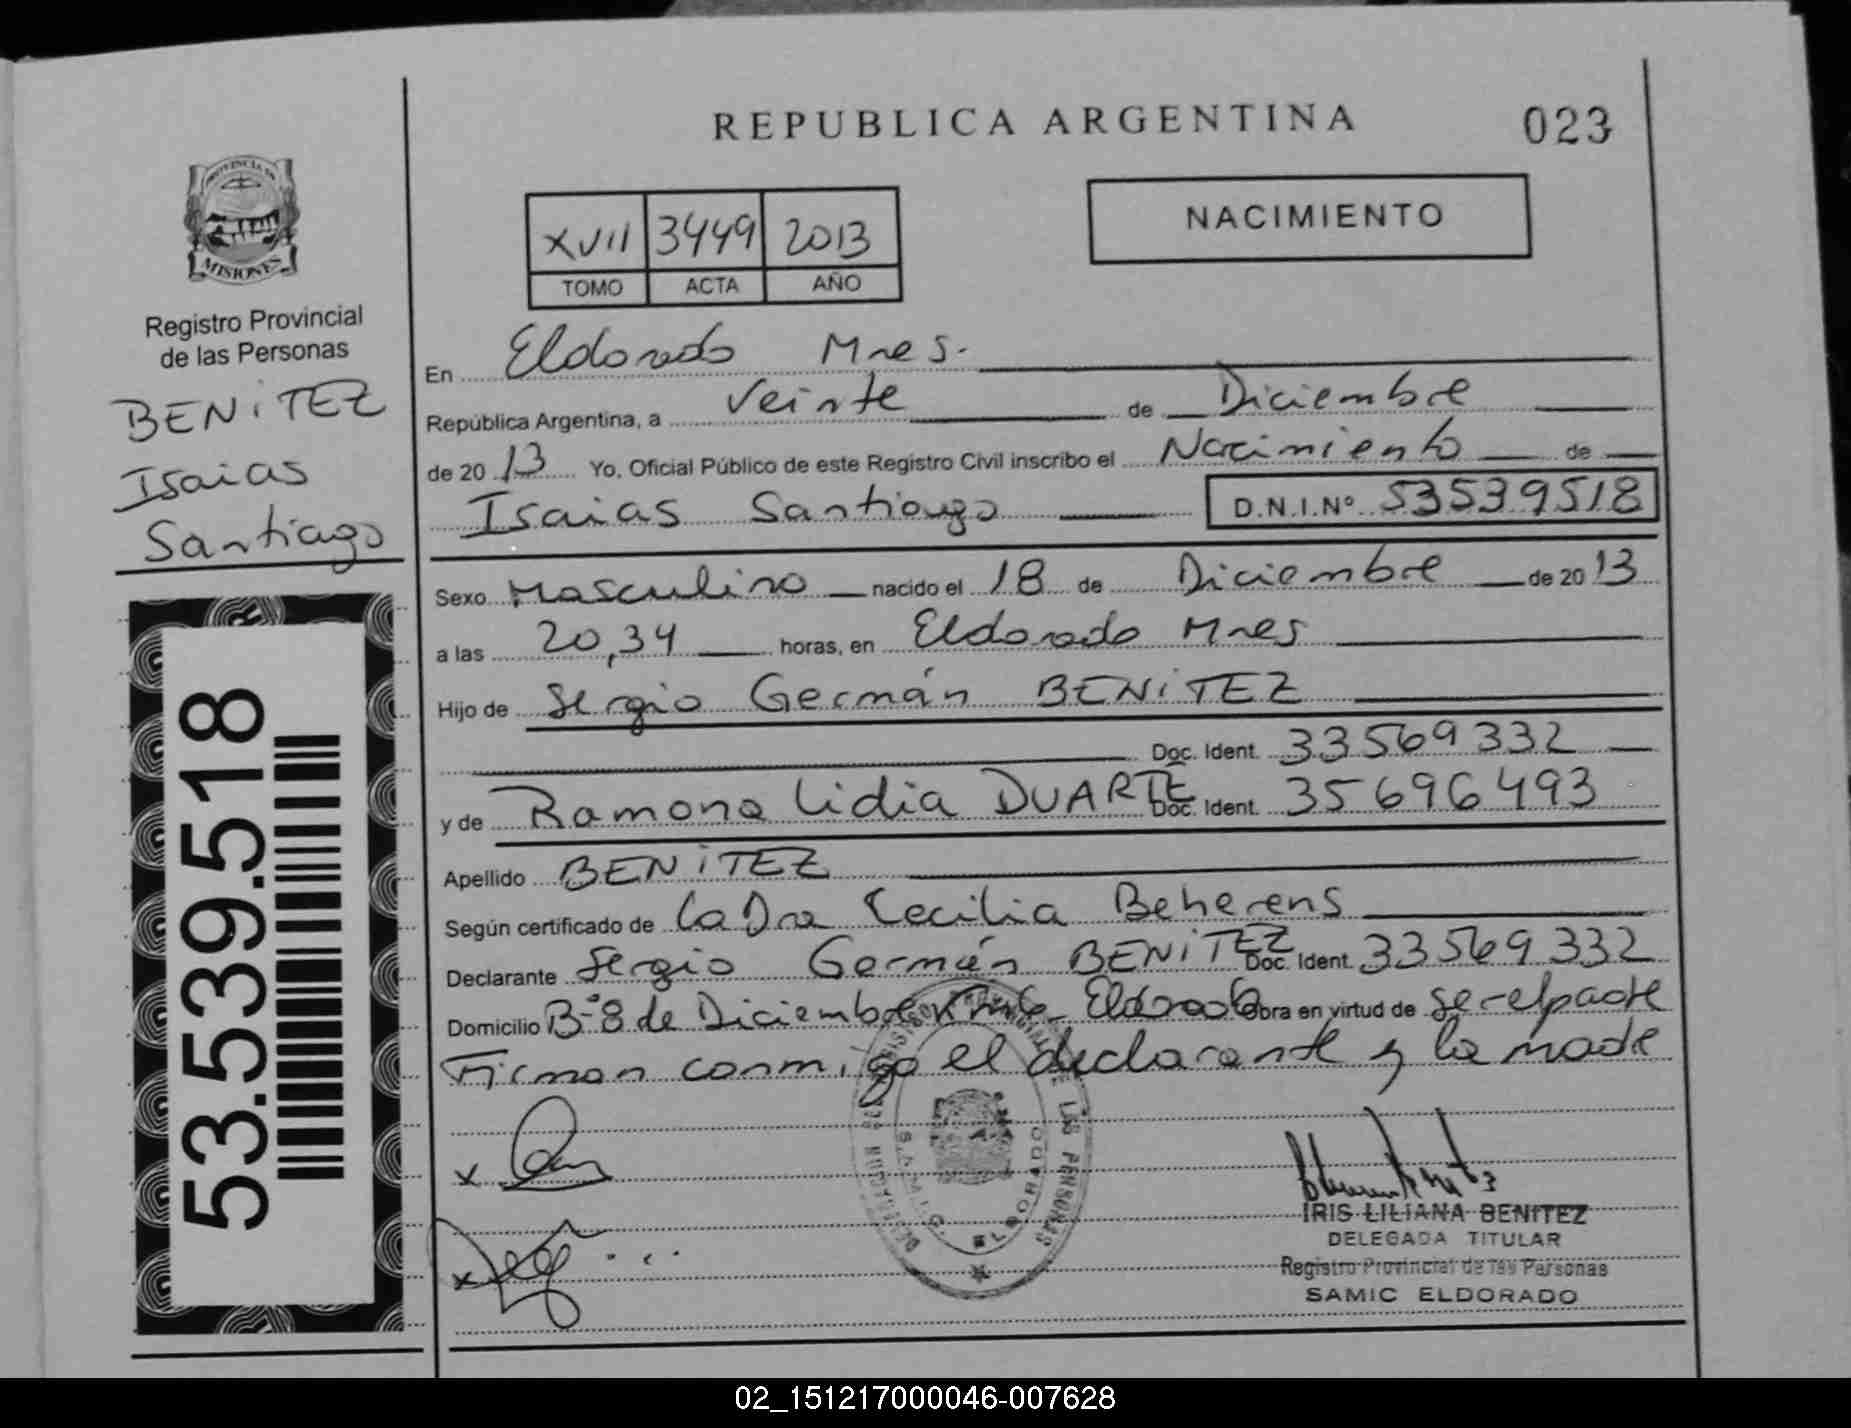 REPUBLICA ARGENTINA
023
PROVINCIA DE
MISIONES
Registro Provincial
de las Personas
BENITEZ
Isaias
Santiago
53.539.518
XVII 3449 2013
TOMO ACTA AÑO
NACIMIENTO
En Eldorado Mnes.
República Argentina, a Veinte de Diciembre
de 2013 Yo, Oficial Público de este Registro Civil inscribo el Nacimiento de
Isaias Santiago D.N.I.Nº 53539518
Sexo Masculino nacido el 18 de Diciembre de 2013
a las 20,34 horas, en Eldorado Mnes
Hijo de Sergio Germán BENITEZ
Doc. Ident. 33569332
y de Ramona Lidia DUARTE Doc. Ident. 35696493
Apellido BENITEZ
Según certificado de La Dra Cecilia Beherens
Declarante Sergio Germán BENITEZ Doc. Ident. 33569332
Domicilio Bº 8 de Diciembre Eldorado Obra en virtud de ser el padre
Firman conmigo el declarante y la madre
LAS PERSONAS
ELDORADO
IRIS LILIANA BENITEZ
DELEGADA TITULAR
Registro Provincial de las Personas
SAMIC ELDORADO
02_151217000046-007628